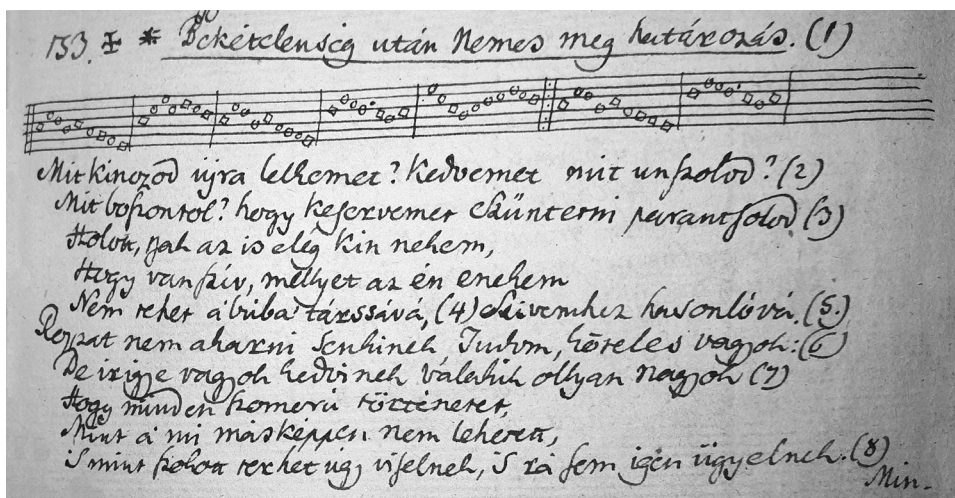 153. ‡ * Békételenség után Nemes meg határozás. (1)
Mit kinozod ujra lelkemet? Kedvemet mit unszolod? (2)
Mit boszontol? hogy keservemet szünterni parantsolod (3)
Holott, jah az is elég kin nekem,
Hogy van sziv, mellyet az én enekem
Nem tehet á búba társsává, (4) Szivemhez hasonlóvá. (5.)
Rosszat nem akarni senkinek Tudom, köteles vagyok: (6)
De irigye vagyok kedvinek Valakik ollyan Nagyok (7)
Hogy minden szomorú történetet,
Mint á mi másképpen nem lehetett,
is mint szokott terhet ugy viselnek, 'S rá sem igen ügyelnek. (8)
Min-